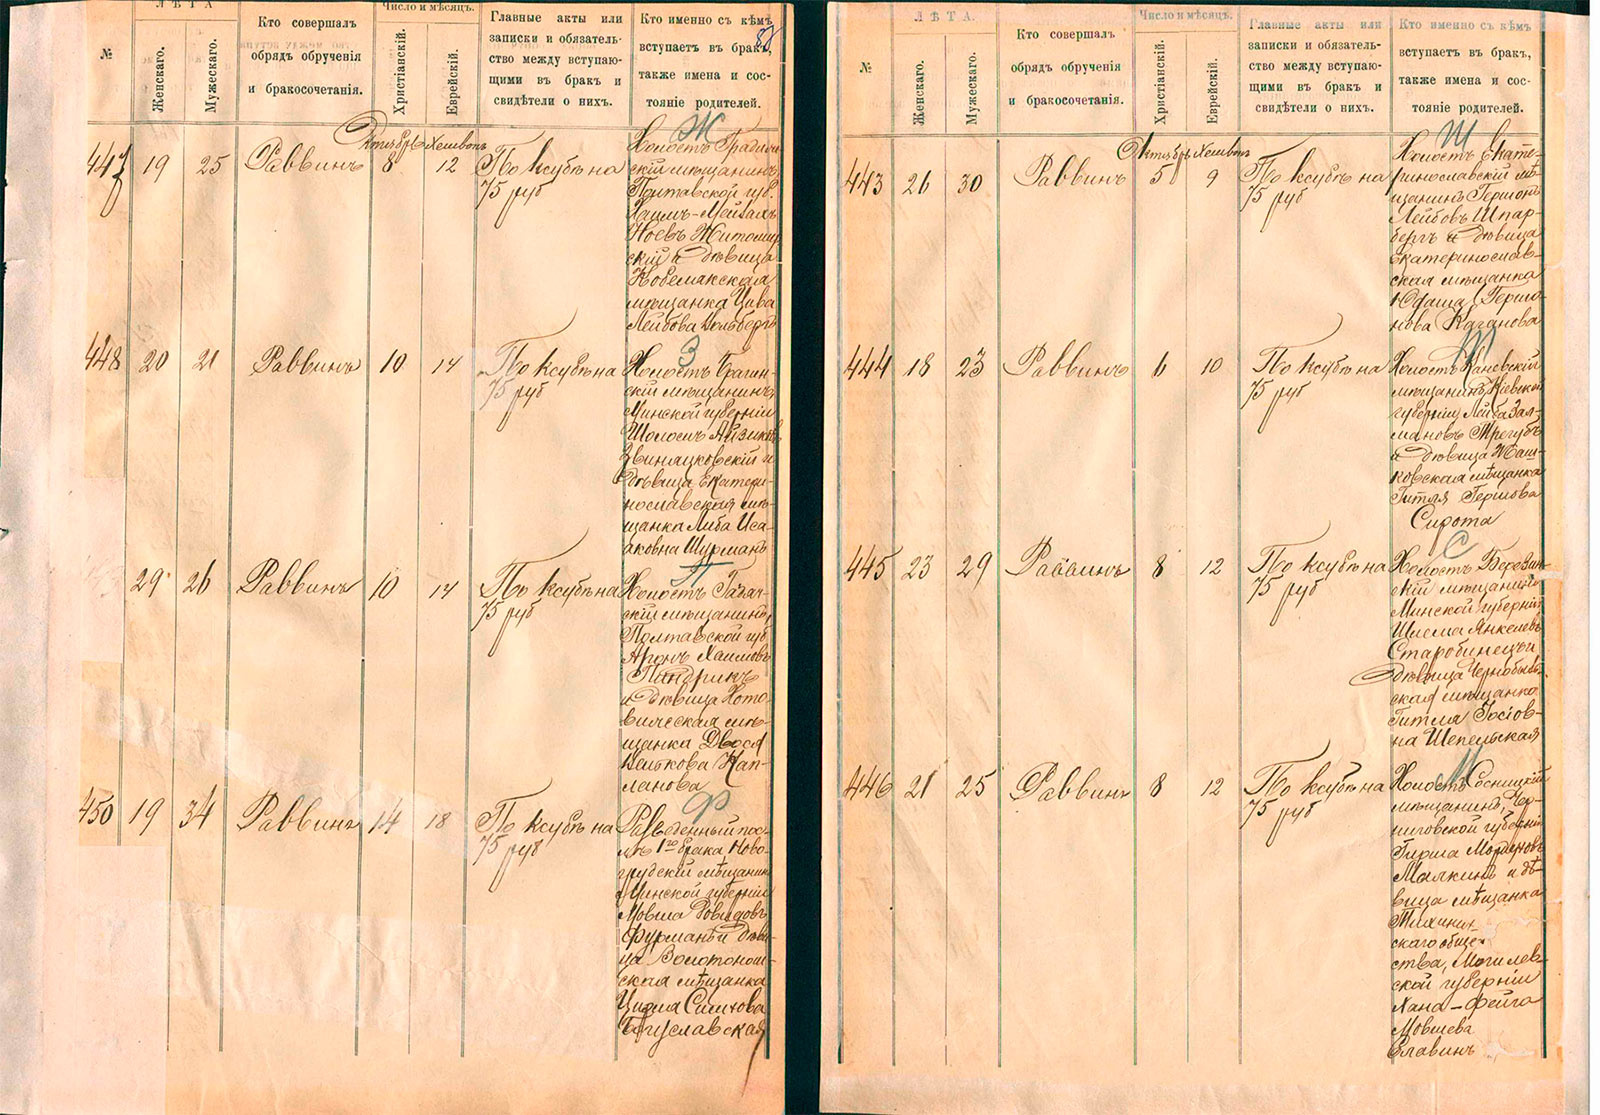 ЛѢТА
№
Женскаго.
Мужескаго.
Кто совершалъ
обрядъ обрученія
и бракосочетанія.
Число и мѣсяцъ.
Христіанскій.
Еврейскій.
Главные акты или
записки и обязатель-
ство между вступаю-
щими въ бракъ и
свидѣтели о нихъ.
Кто именно съ кѣмъ
вступаетъ въ бракъ,
также имена и сос-
тояніе родителей.
Октябрь Хешвонъ
447 19 25 Раввинъ 8 12 По ксубѣ на
75 руб
Ж
Холостъ
скій мѣщанинъ
Полтавской губ.
Хаимъ-Мейлахъ
Ноевъ Житомир
скій и дѣвица
Кобелякская
мѣщанка Цива
Лейбова Вольбергъ
448 20 21 Раввинъ 10 14 По ксубѣ на
75 руб
З
Холостъ Брагин-
скій мѣщанинъ
Минской губерніи
Шоломъ Айзиковъ
Звиняцковскій и
дѣвица Екатери-
нославская мѣ-
щанка Либа Иса-
аковна Шурманъ
29 26 Раввинъ 10 14 По ксубѣ на
75 руб
П
Холостъ Гадяч-
скій мѣщанинъ
Полтавской губ
Аронъ Хаимовъ
Пиндрикъ
и дѣвица Хото-
вичская мѣ-
щанка Двося
Велькова Кап-
ланова
450 19 34 Раввинъ 14 18 По ксубѣ на
75 руб
Ф
Разведенный пос-
лѣ 1го брака Ново-
грудскій мѣщанинъ
Минской губерніи
Мовша Довидовъ
Фурманъ и дѣви-
ца Золотонош-
ская мѣщанка
Цирла Симхова
Богуславская
ЛѢТА.
№
Женскаго.
Мужескаго.
Кто совершалъ
обрядъ обрученія
и бракосочетанія.
Число и мѣсяцъ.
Христіанскій.
Еврейскій.
Главные акты или
записки и обязатель-
ство между вступаю-
щими въ бракъ и
свидѣтели о нихъ.
Кто именно съ кѣмъ
вступаетъ въ бракъ,
также имена и сос-
тояніе родителей.
Октябрь Хешвонъ
443 26 30 Раввинъ 5 9 По ксубѣ на
75 руб
Ш
Холостъ Екате-
ринославскій мѣ-
щанинъ Гершонъ
Лейбовъ Шпар-
бергъ и дѣвица
Екатеринослав-
ская мѣщанка
Юдаша Гершо-
нова Каганова
444 18 23 Раввинъ 6 10 По ксубѣ на
75 руб
Т
Холостъ Каневскій
мѣщанинъ Кіевской
губерніи Лейба Зал-
мановъ Трегубъ
и дѣвица Жаш-
ковская мѣщанка
Гитля Гершова
Сирота
445 23 29 Раввинъ 8 12 По ксубѣ на
75 руб
С
Холостъ Березин-
скій мѣщанинъ
Минской губерніи
Шлема Янкелевъ
Старобинецъ и
дѣвица Чернобыль-
ская мѣщанка
Гитля Іосіов-
на Шепельская
446 21 25 Раввинъ 8 12 По ксубѣ на
75 руб
М
Холостъ Сосницкій
мѣщанинъ, Чер-
ниговской губерніи
Гирша Мордуховъ
Малкинъ и дѣ-
вица мѣщанка
скаго обще-
ства, Могилев-
ской губерніи
Хана-Фейга
Мовшева
Славинъ